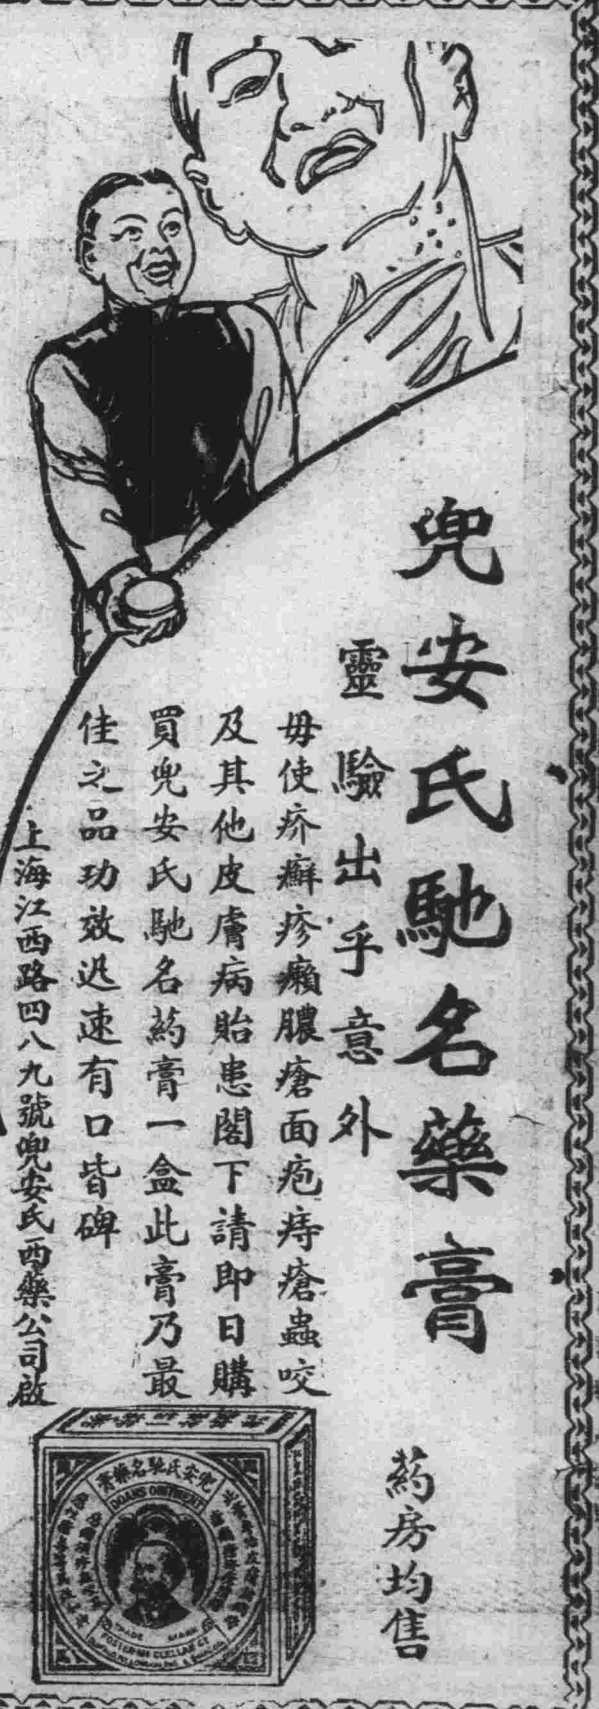 兜安氏馳名藥膏
靈驗出乎意外
毋使疥癬疹癩膿瘡面疱痔瘡蟲咬
及其他皮膚病貽患閣下請即日購
買兜安氏馳名药膏一盒此膏乃最
佳之品功效迅速有口皆碑
上海江西路四八九號兜安氏西藥公司啟
药房均售
兜安氏馳名藥膏
DOANS OINTMENT
TRADE MARK
FOSTER-MCCLELLAN CO